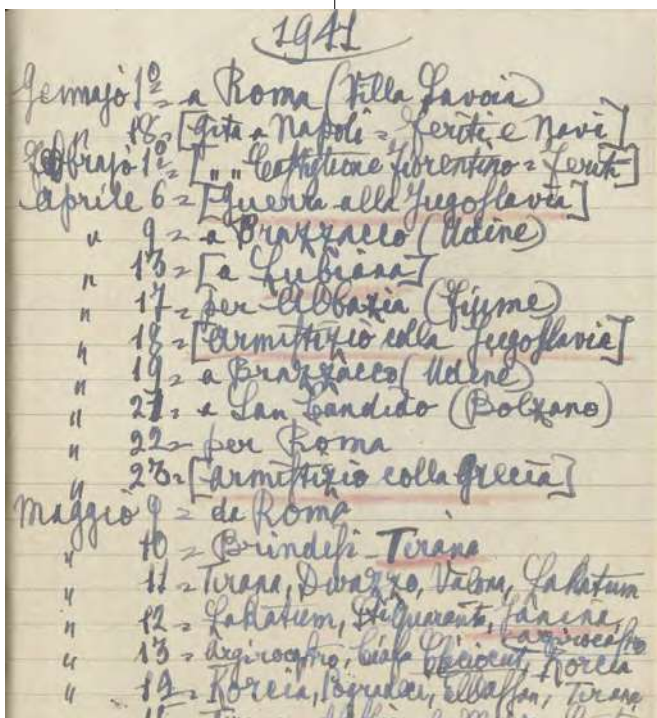 1941
Gennajo 1º = a Roma (Villa Savoia)
" 18 = [Gita a Napoli = feriti e navi]
Febbrajo 1º = [" " Castiglione fiorentino = feriti]
Aprile 6 = [Guerra alla Jugoslavia]
" 9 = a Brazzacco (Udine)
" 13 = [a Lubiana]
" 17 = per Abbazia (Fiume)
" 18 = [armistizio colla Jugoslavia]
" 19 = a Brazzacco (Udine)
" 21 = a San Candido (Bolzano)
" 22 = per Roma
" 23 = [armistizio colla Grecia]
Maggio 9 = da Roma
" 10 = Brindisi - Tirana
" 11 = Tirana, Durazzo, Valona,
" 12 = Sti Quaranta, Janina,
Argirocastro
" 13 = Argirocastro, Korcia
" 14 = Korcia, Pogradec, Elbassan, Tirana